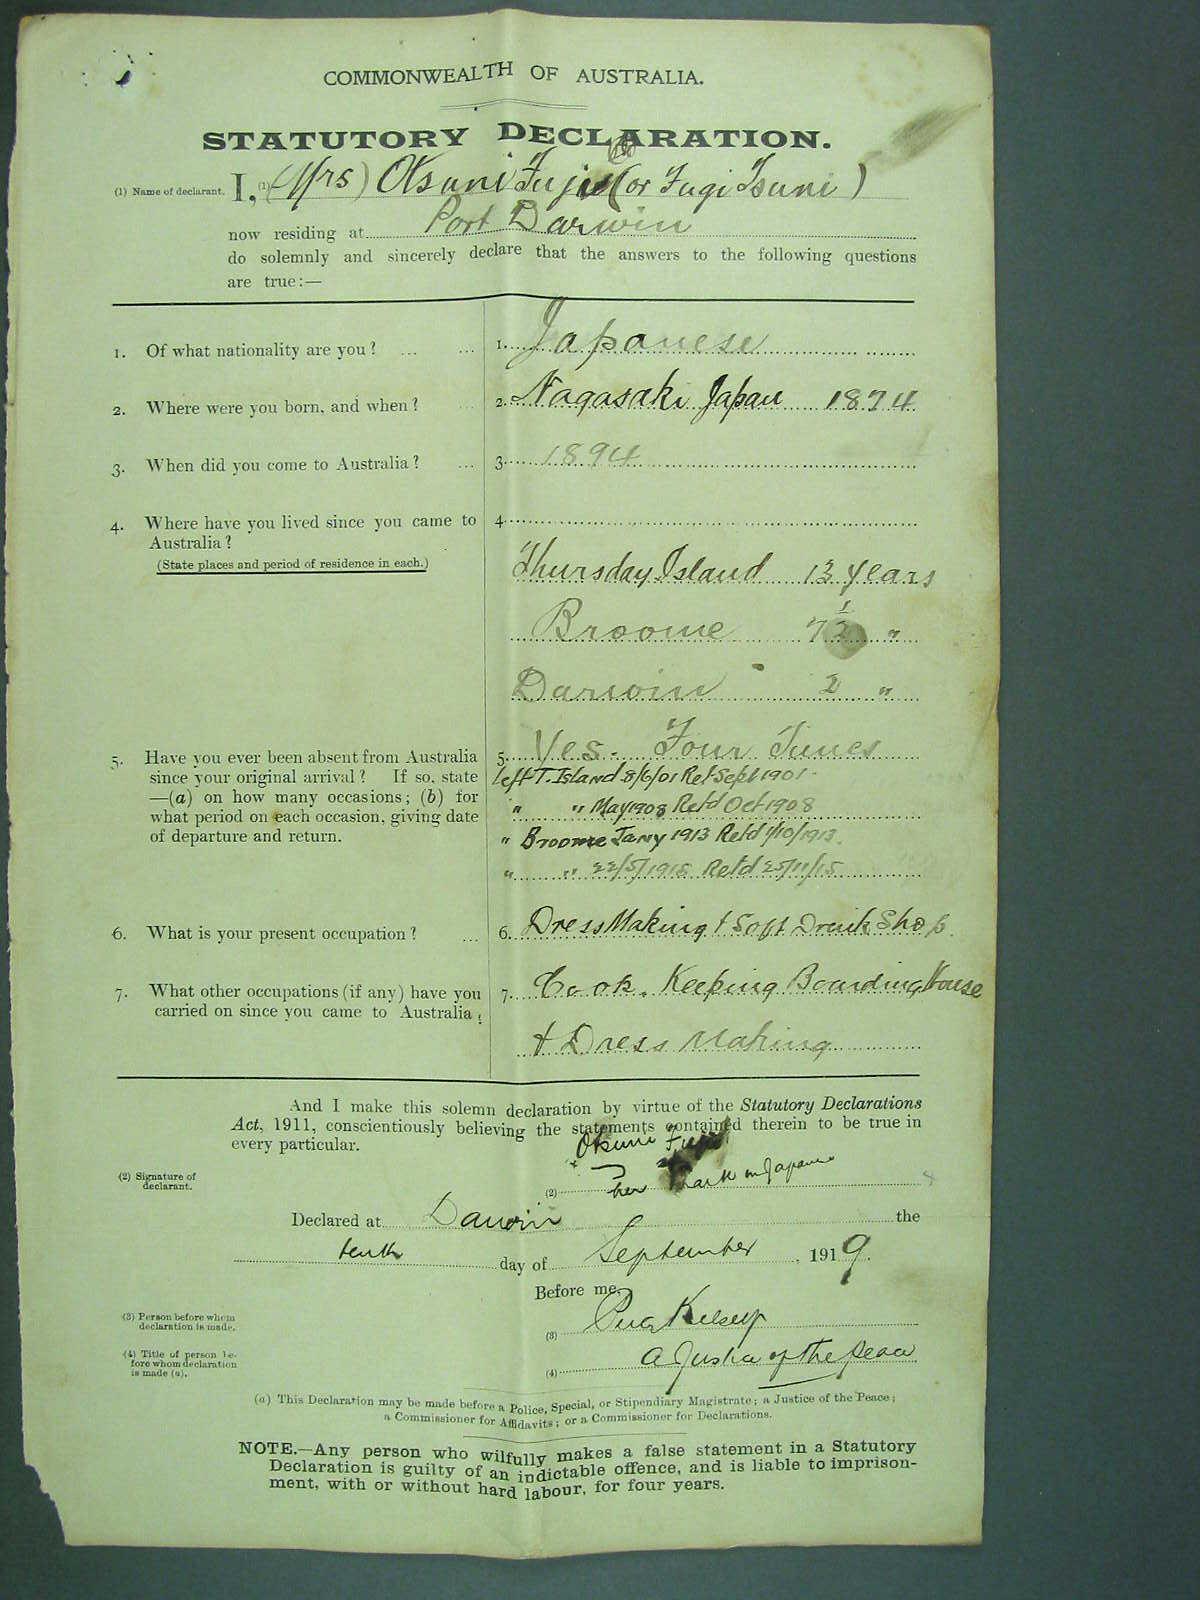 COMMONWEALTH OF AUSTRALIA.
STATUTORY DECLARATION.
(1) Name of declarant. I, (1) (Mrs) Okuni Fujii (or Fugi Tsuni)
now residing at Port Darwin
do solemnly and sincerely declare that the answers to the following questions
are true:—
1. Of what nationality are you? ... ... 1. Japanese
2. Where were you born, and when? ... 2. Nagasaki Japan 1874
3. When did you come to Australia? ... 3. 1894
4. Where have you lived since you came to 4.
Australia?
(State places and period of residence in each.)
Thursday Island 13 years
Broome 7 1/2 "
Darwin 2 "
5. Have you ever been absent from Australia 5. Yes. Four Times
since your original arrival? If so, state left T. Island 8/6/01 Ret Sept 1901.
—(a) on how many occasions; (b) for " " May 1908 Retd Oct 1908
what period on each occasion, giving date
of departure and return. " Broome Jany 1913 Retd 1/10/1913.
" " 22/5/1915 Retd 25/11/15
6. What is your present occupation? ... 6. Dress Making & Soft Drink Shop.
7. What other occupations (if any) have you 7. Cook. Keeping Boarding House
carried on since you came to Australia?
& Dress Making
And I make this solemn declaration by virtue of the Statutory Declarations
Act, 1911, conscientiously believing the statements contained therein to be true in
every particular.
Okuni
(2) Signature of declarant. (2) her mark in Japanese
Declared at Darwin the
tenth day of September, 1919.
Before me,
(3) Person before whom declaration is made. (3) Kelsey
(4) Title of person before whom declaration is made (a). (4) A Justice of the Peace
(a) This Declaration may be made before a Police, Special, or Stipendiary Magistrate; a Justice of the Peace;
a Commissioner for Affidavits; or a Commissioner for Declarations.
NOTE.—Any person who wilfully makes a false statement in a Statutory
Declaration is guilty of an indictable offence, and is liable to imprison-
ment, with or without hard labour, for four years.